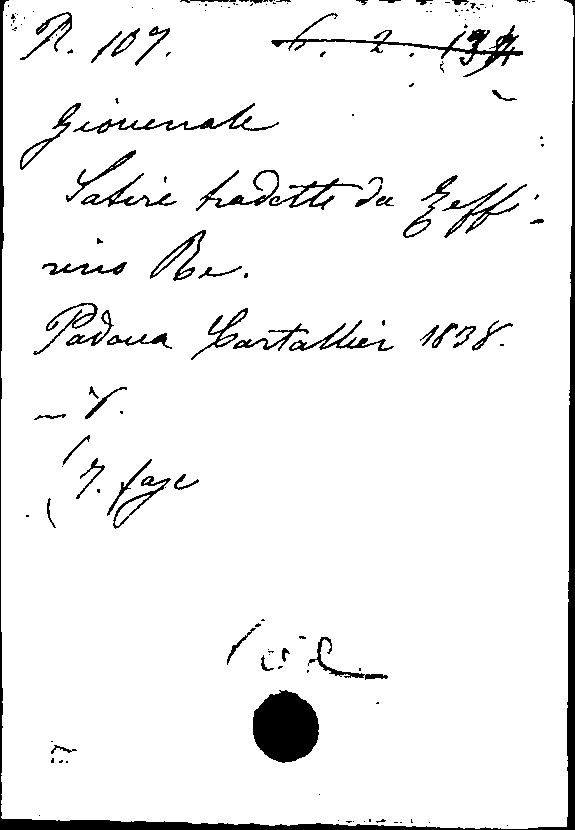 R. 107. 6. 2.
Giovenale
Satire tradotte da Zeffi-
rino Re.
Padova Cartallier 1838.
– 8.